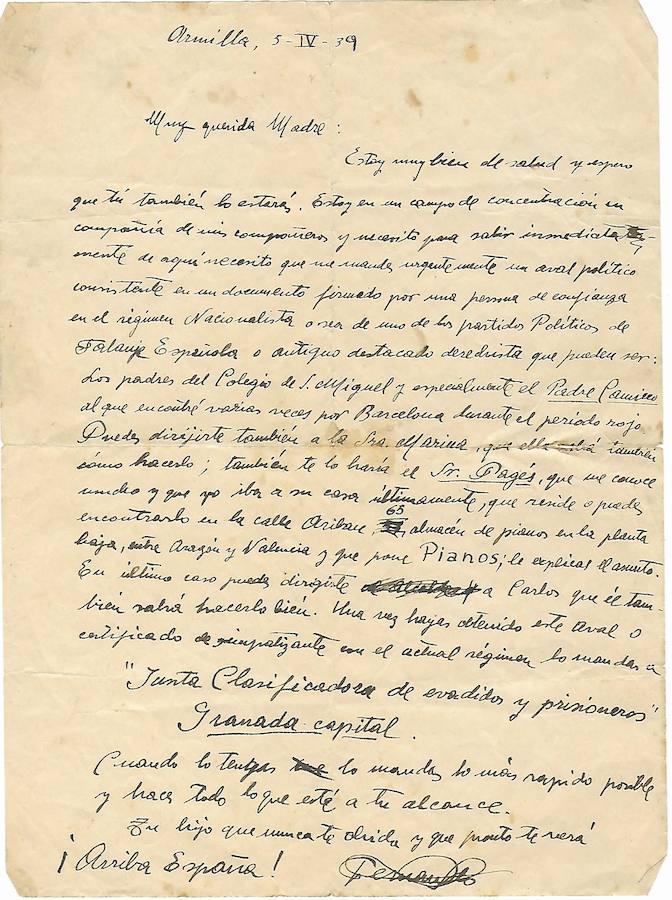 Armilla, 5-IV-39
Muy querida Madre:
Estoy muy bien de salud y espero
que tú también lo estarás. Estoy en un campo de concentración en
compañía de mis compañeros y necesito para salir inmediata-
mente de aquí necesito que me mandes urgentemente un aval político
consistente en un documento firmado por una persona de confianza
en el régimen Nacionalista o sea de uno de los partidos Políticos de
Falange Española o antiguo destacado derechista que pueden ser:
Los padres del Colegio de S. Miguel y especialmente el Padre Camilo
al que encontré varias veces por Barcelona durante el período rojo.
Puedes dirijirte también a la Sra. Marina, que ella sabrá también
cómo hacerlo; también te lo haría el Sr. Pagés, que me conoce
mucho y que yo iba a su casa últimamente, que reside o puedes
encontrarlo en la calle Aribau, 65 almacén de pianos en la planta
baja, entre Aragón y Valencia y que pone Pianos; le explicas el asunto.
En último caso puedes dirigirte a Carlos que él tam-
bién sabrá hacerlo bién. Una vez hayas obtenido este aval o
certificado de simpatizante con el actual régimen lo mandas a
"Junta Clasificadora de evadidos y prisioneros"
Granada capital.
Cuando lo tengas lo mandas lo más rapido posible
y haces todo lo que está a tu alcance.
Tu hijo que nunca te olvida y que pronto te verá
¡Arriba España! Fernando